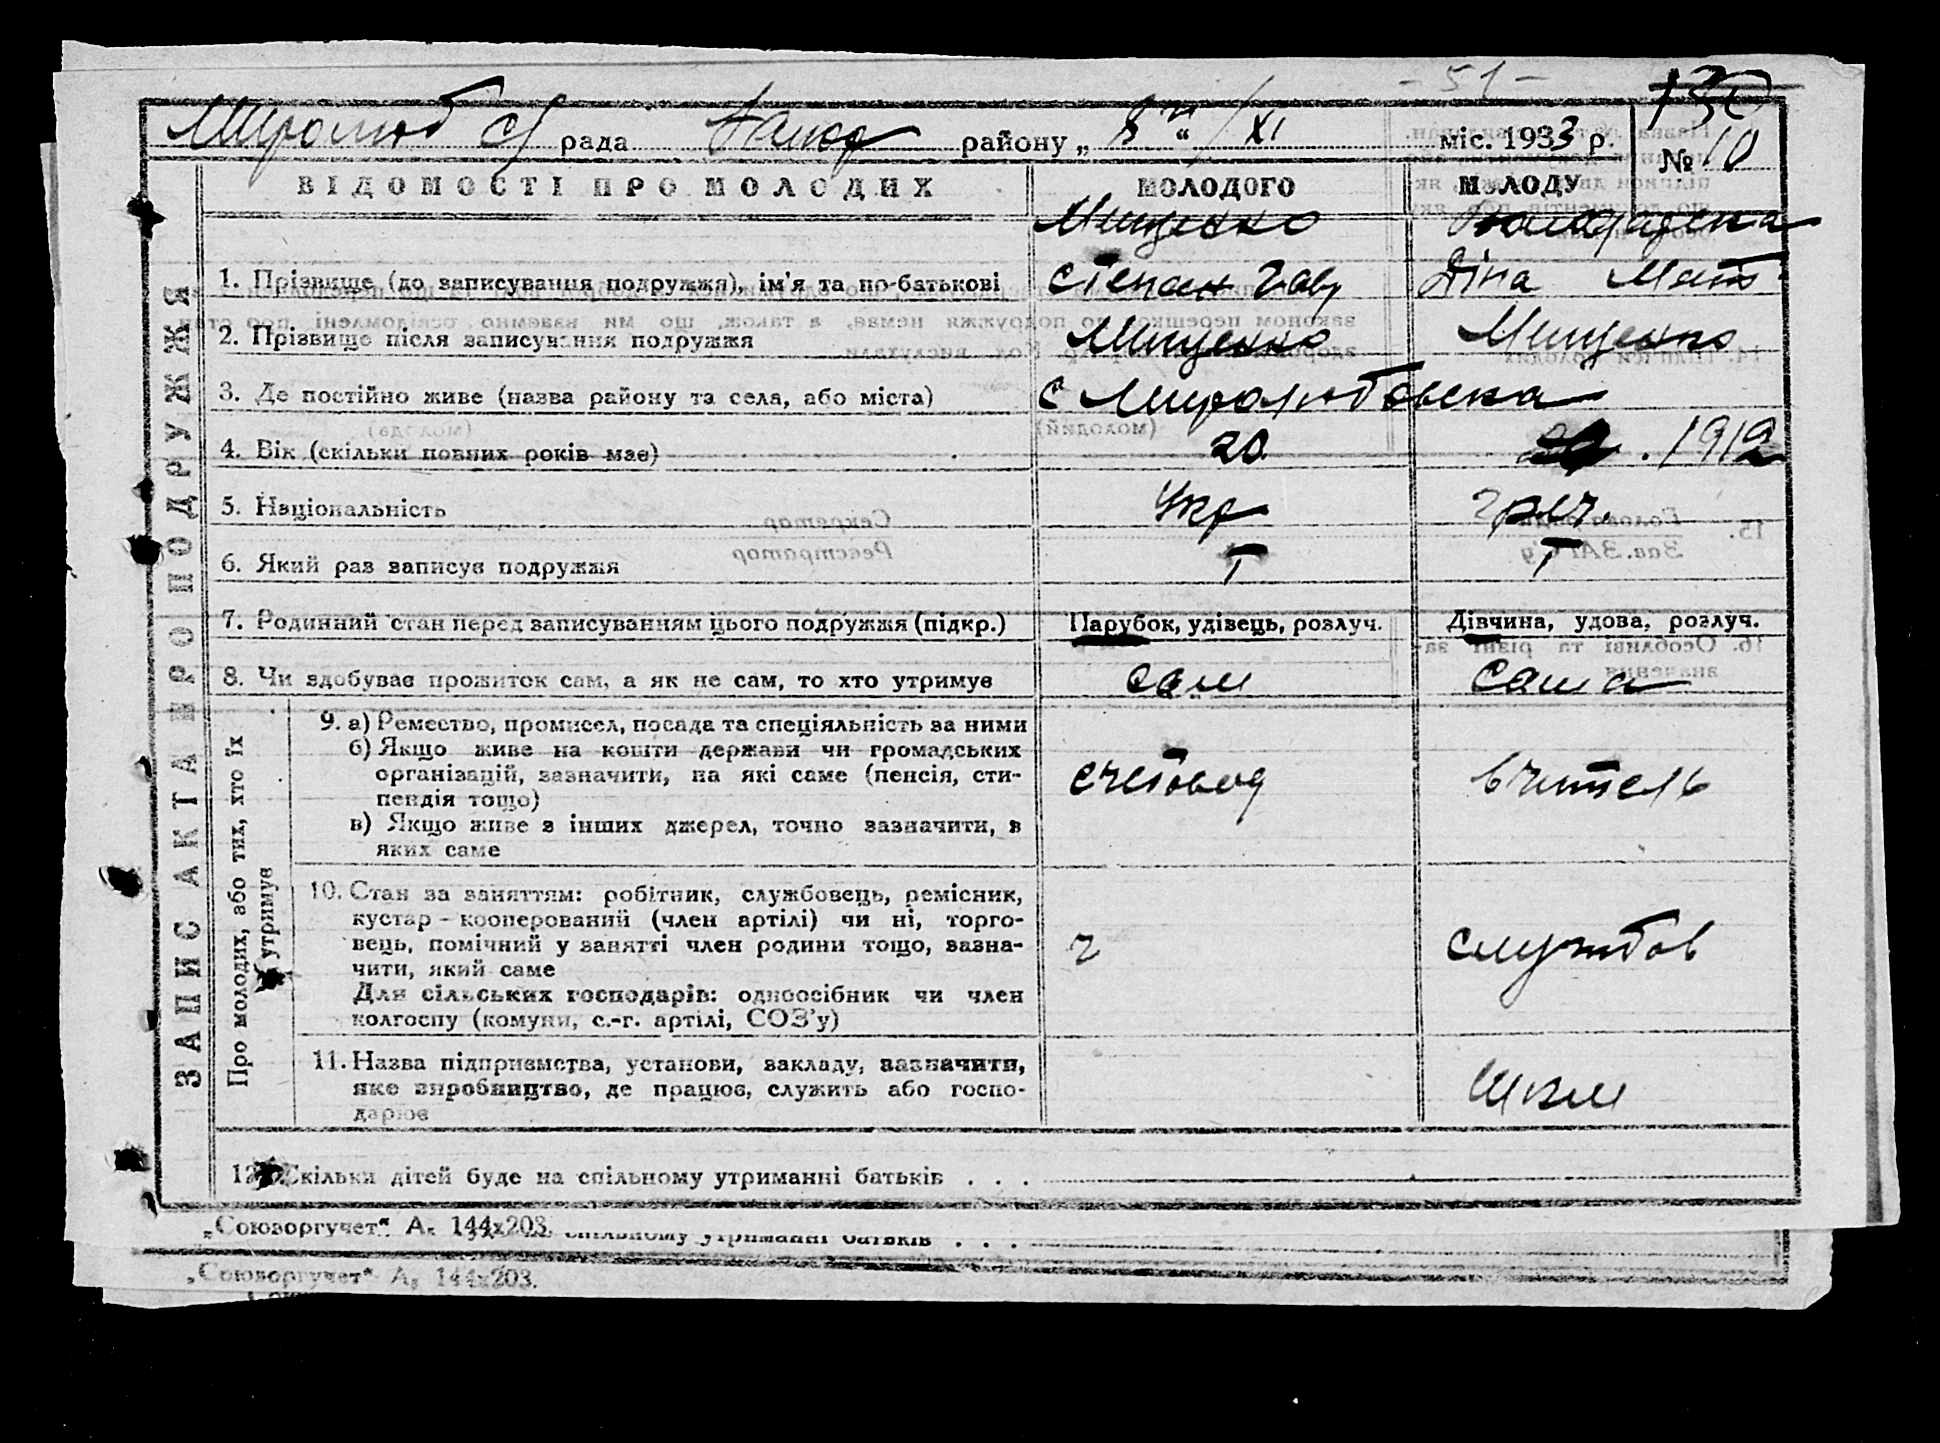 - 51 -
130
Миролюб с/ рада району „ 8 “ / XI міс. 1933 р. № 10
ВІДОМОСТІ ПРО МОЛОДИХ МОЛОДОГО МОЛОДУ
ЗАПИС АКТА ПРО ПОДРУЖЖЯ
Мищенко
1. Прізвище (до записування подружжя), ім'я та по-батькові Степан Гавр Діна Матв
2. Прізвище після записування подружжя Мищенко Мищенко
3. Де постійно живе (назва району та села, або міста) с Миролюбовска
4. Вік (скільки повних років має) 20. . 1912
5. Національність Укр греч.
6. Який раз записує подружжя I I
7. Родинний стан перед записуванням цього подружжя (підкр.) Парубок, удівець, розлуч. Дівчина, удова, розлуч.
8. Чи здобуває прожиток сам, а як не сам, то хто утримує сам сама
Про молодих, або тих, хто їх
утримує
9. а) Ремество, промисел, посада та спеціяльність за ними
б) Якщо живе на кошти держави чи громадських
організацій, зазначити, на які саме (пенсія, сти-
пендія тощо)
в) Якщо живе з інших джерел, точно зазначити, в
яких саме
счетовод вчитель
10. Стан за заняттям: робітник, службовець, ремісник,
кустар - кооперований (член артілі) чи ні, торго-
вець, помічний у занятті член родини тощо, зазна-
чити, який саме
Для сільських господарів: одноосібник чи член
колгоспу (комуни, с.-г. артілі, СОЗ'у)
службов
11. Назва підприємства, установи, закладу, зазначити,
яке виробництво, де працює, служить або госпо-
дарює
шком
12. Скільки дітей буде на спільному утриманні батьків . . .
„Союзоргучет“ А. 144х203.
спільному утриманні батьків . . .
„Союзоргучет“ А. 144х203.